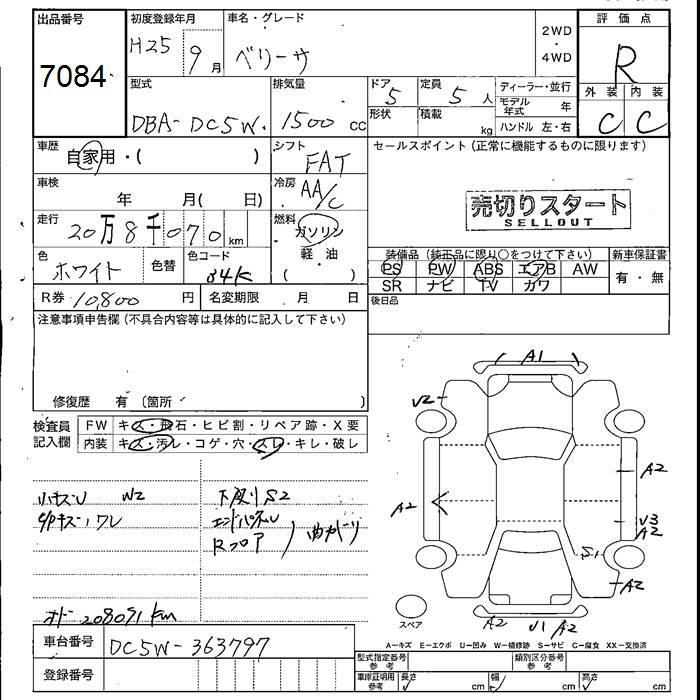 出品番号 初度登録年月 車名・グレード 2WD ・ 4WD 評価点
7084 H25 9月 ベリーサ R
型式 排気量 ドア 定員 ディーラー・並行 外装 内装
DBA-DC5W 1500 cc 5 5人 モデル年式 年 C C
形状 積載 kg ハンドル 左・右
車歴 自家用・( ) シフト FAT セールスポイント(正常に機能するものに限ります)
車検 年 月( 日) 冷房 AA/C
売切りスタート
SELLOUT
走行 20万8千070km 燃料 ガソリン
軽・油
( )
色 ホワイト 色替 色コード 34K
装備品(純正品に限り○をつけて下さい) 新車保証書
PS PW ABS エアB AW 有・無
SR ナビ TV カワ
R券 10,800円 名変期限 月 日 後日品
注意事項申告欄(不具合内容等は具体的に記入して下さい)
修復歴 有 (箇所 )
検査員記入欄 FW キズ・飛石・ヒビ割・リペア跡・X要
内装 キズ・汚レ・コゲ・穴・スレ・キレ・破レ
小キズU W2 下廻りS2
エンドパネル
Rフロア 曲がり
オドー 208091km
A1
U2
A2
A2
A2
S1
A2
A2
U1 A2
スペア
車台番号 DC5W-363797
A-キズ E-エクボ U-凹み W-補修跡 S-サビ C-腐食 XX-交換済
登録番号
型式指定番号 参考 類別区分番号 参考
車庫証明用 参考 長さ cm 幅 cm 高さ cm